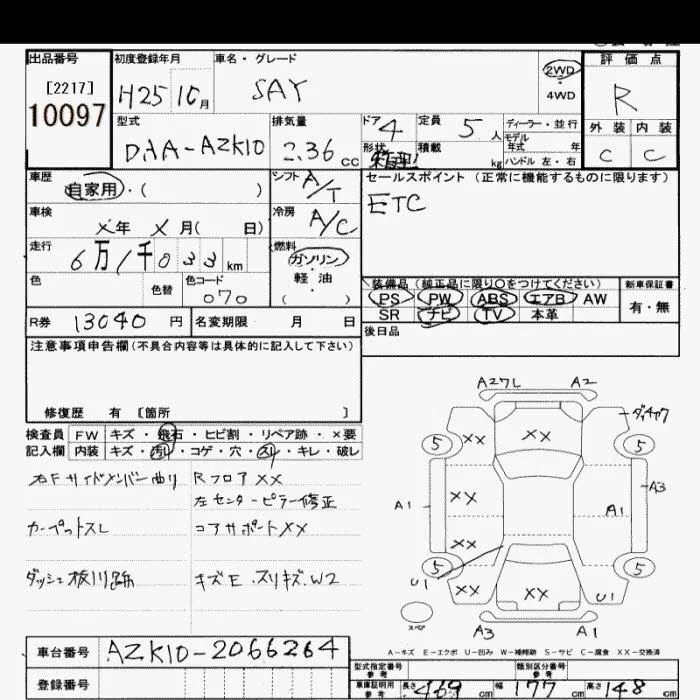 出品番号
[2217]
10097
初度登録年月
H25 10月
車名・グレード
SAY
2WD
4WD
評価点
R
外装 内装
C C
型式
DAA-AZK10
排気量
2.36 cc
ドア
4
形状
定員
5 人
積載
kg
ディーラー・並行
モデル
年式 年
ハンドル 左・右
車歴
自家用・( )
シフト
A/T
セールスポイント (正常に機能するものに限ります)
ETC
車検
X年 X月( 日)
冷房
A/C
走行
6万1千033km
燃料
ガソリン
軽油
( )
色
色替
色コード
070
装備品(純正品に限り○をつけてください)
PS PW ABS エアB AW
SR ナビ TV 本革
新車保証書
有・無
R券 13040 円
名変期限 月 日
後日品
注意事項申告欄(不具合内容等は具体的に記入して下さい)
修復歴 有 〔箇所 〕
検査員
記入欄
FW キズ・飛石・ヒビ割・リペア跡・×要
内装 キズ・汚れ・コゲ・穴・スリ・キレ・破レ
右Fサイドメンバー曲り
RフロアXX
左センターピラー修正
カーペットスレ
コアサポートXX
ダッシュ板川跡
キズE.スリキズ.W2
A27L A2
XX XX
5 5
A1 XX A1 A3
XX
5 5
U1 XX XX U1
スペア
A3 A1
A-キズ E-エクボ U-凹み W-補修跡 S-サビ C-腐食 XX-交換済
車台番号
AZK10-2066264
登録番号
型式指定番号
参考
類別区分番号
参考
車庫証明用
参考
長さ 469 cm 幅 177 cm 高さ 148 cm